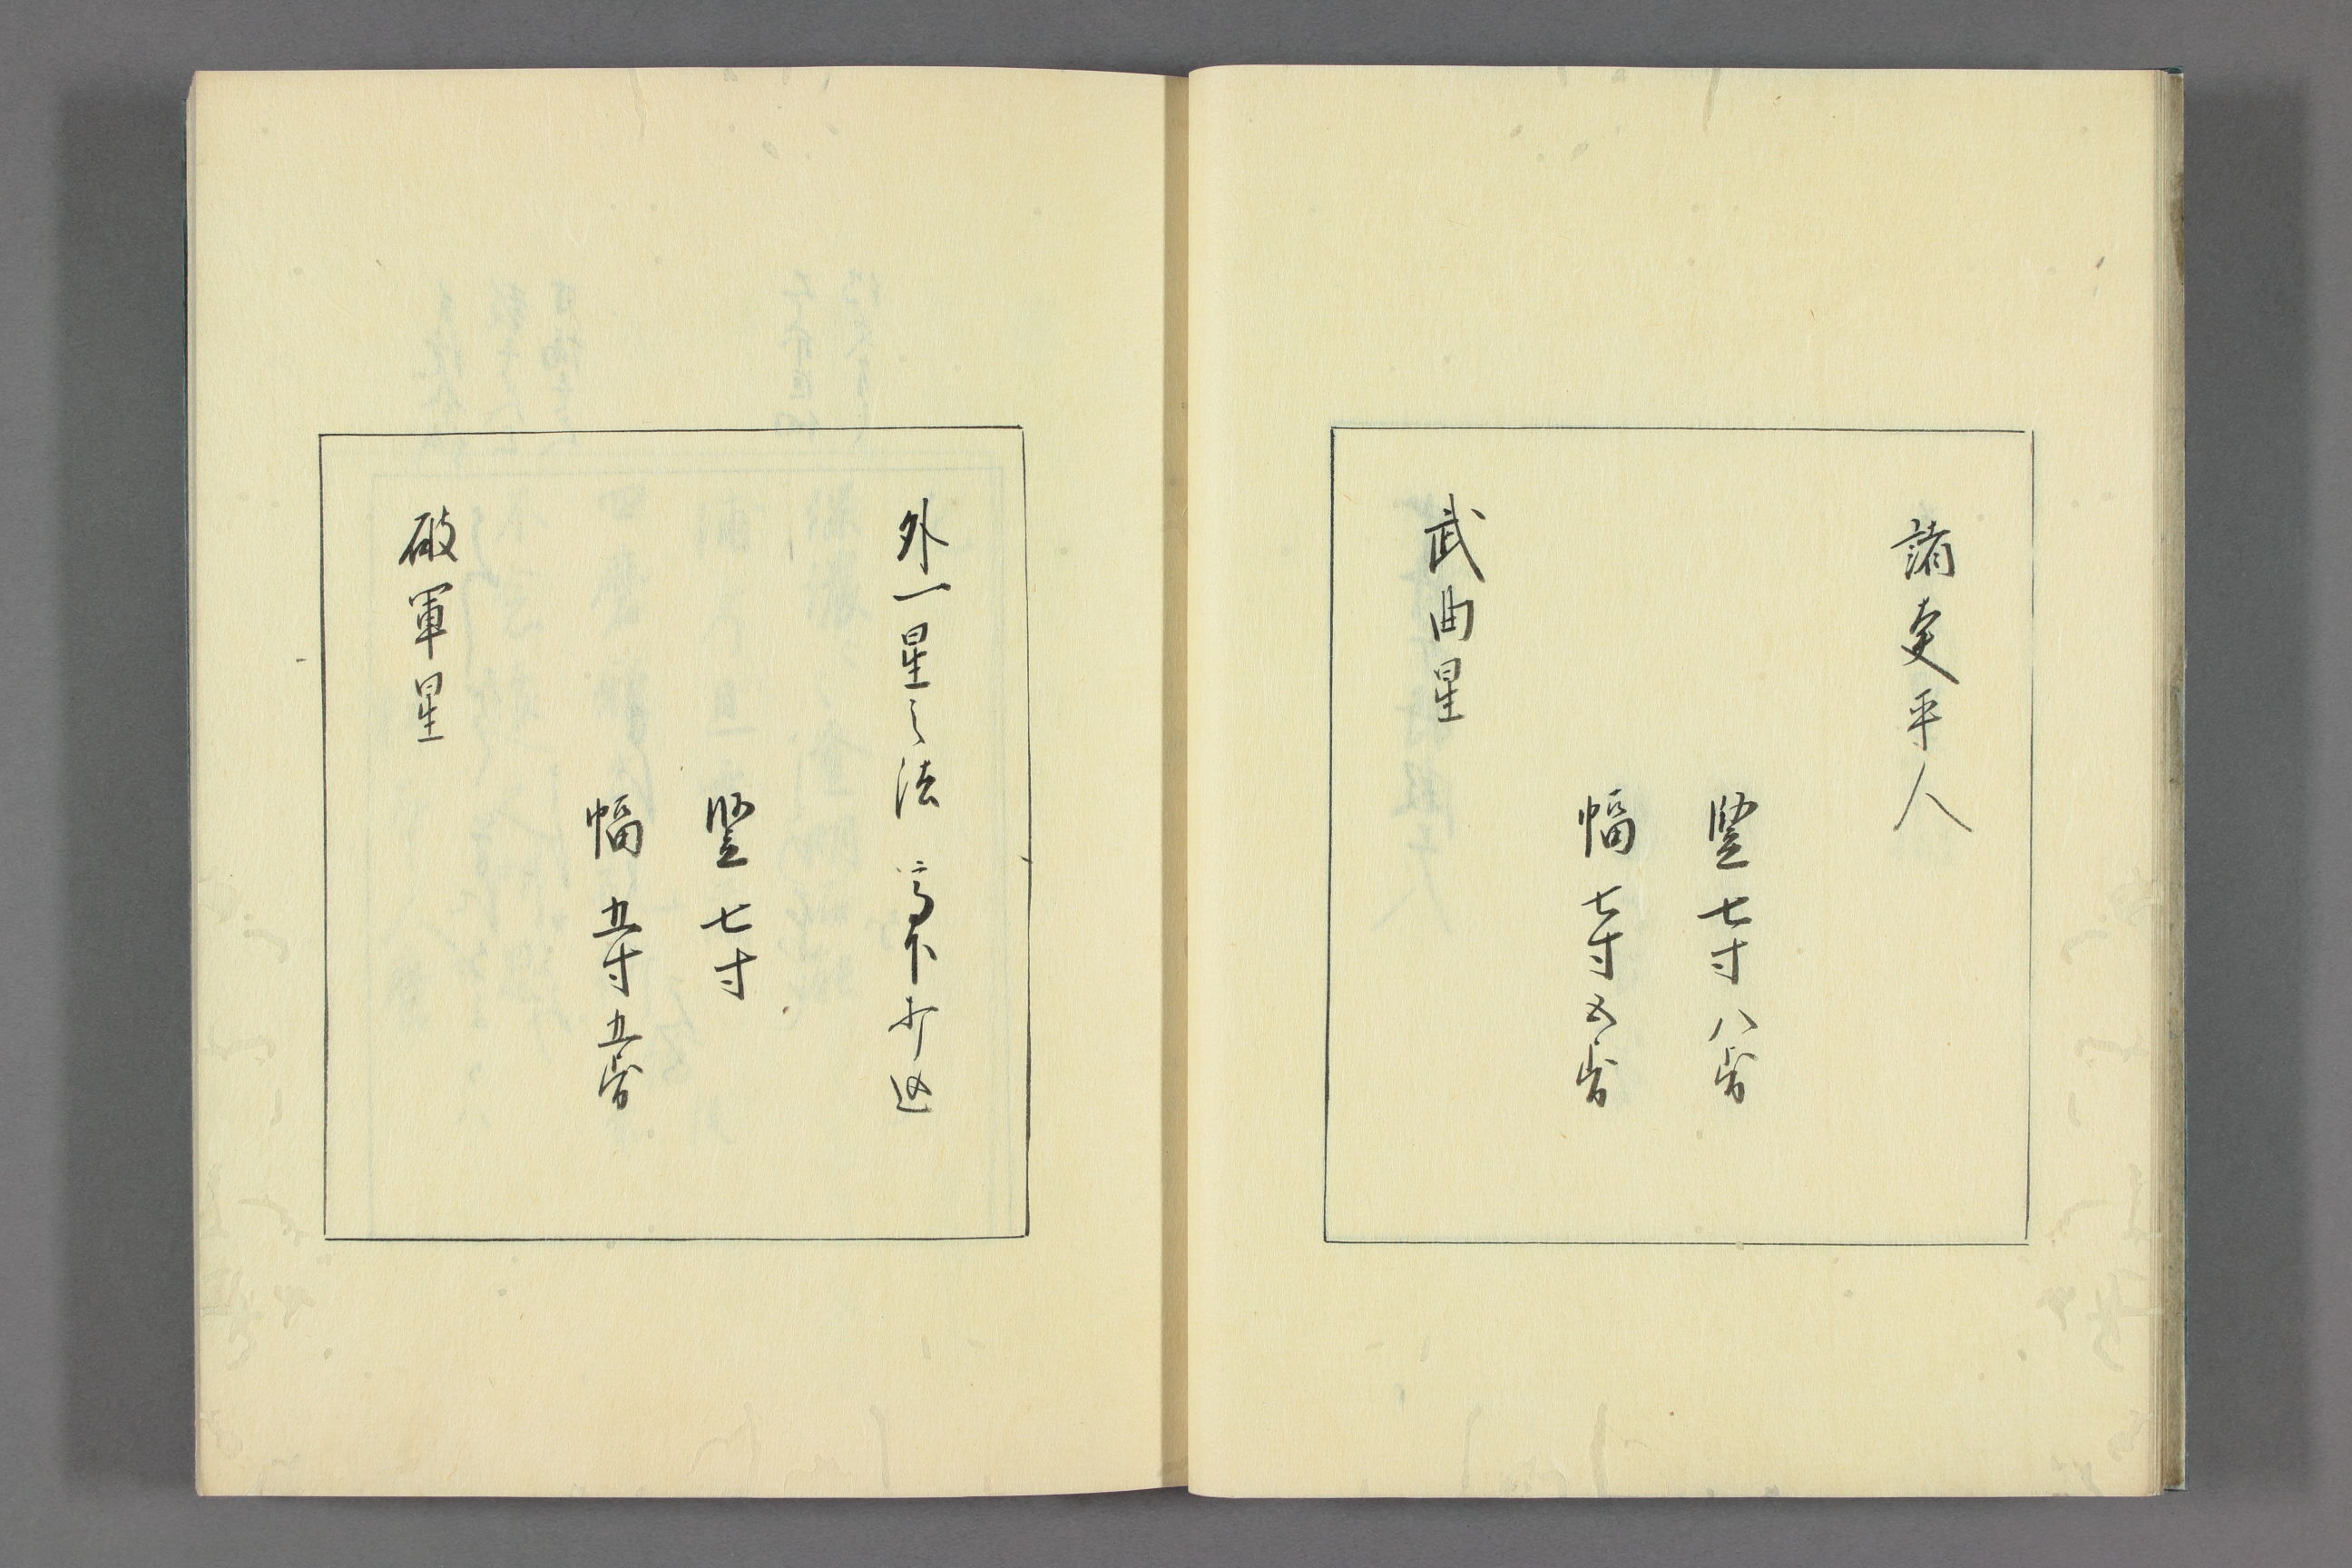 諸吏平人
竪七寸八歩
幅七寸五歩
武曲星
外一星之法 高下
竪七寸
幅五寸五歩
破軍星